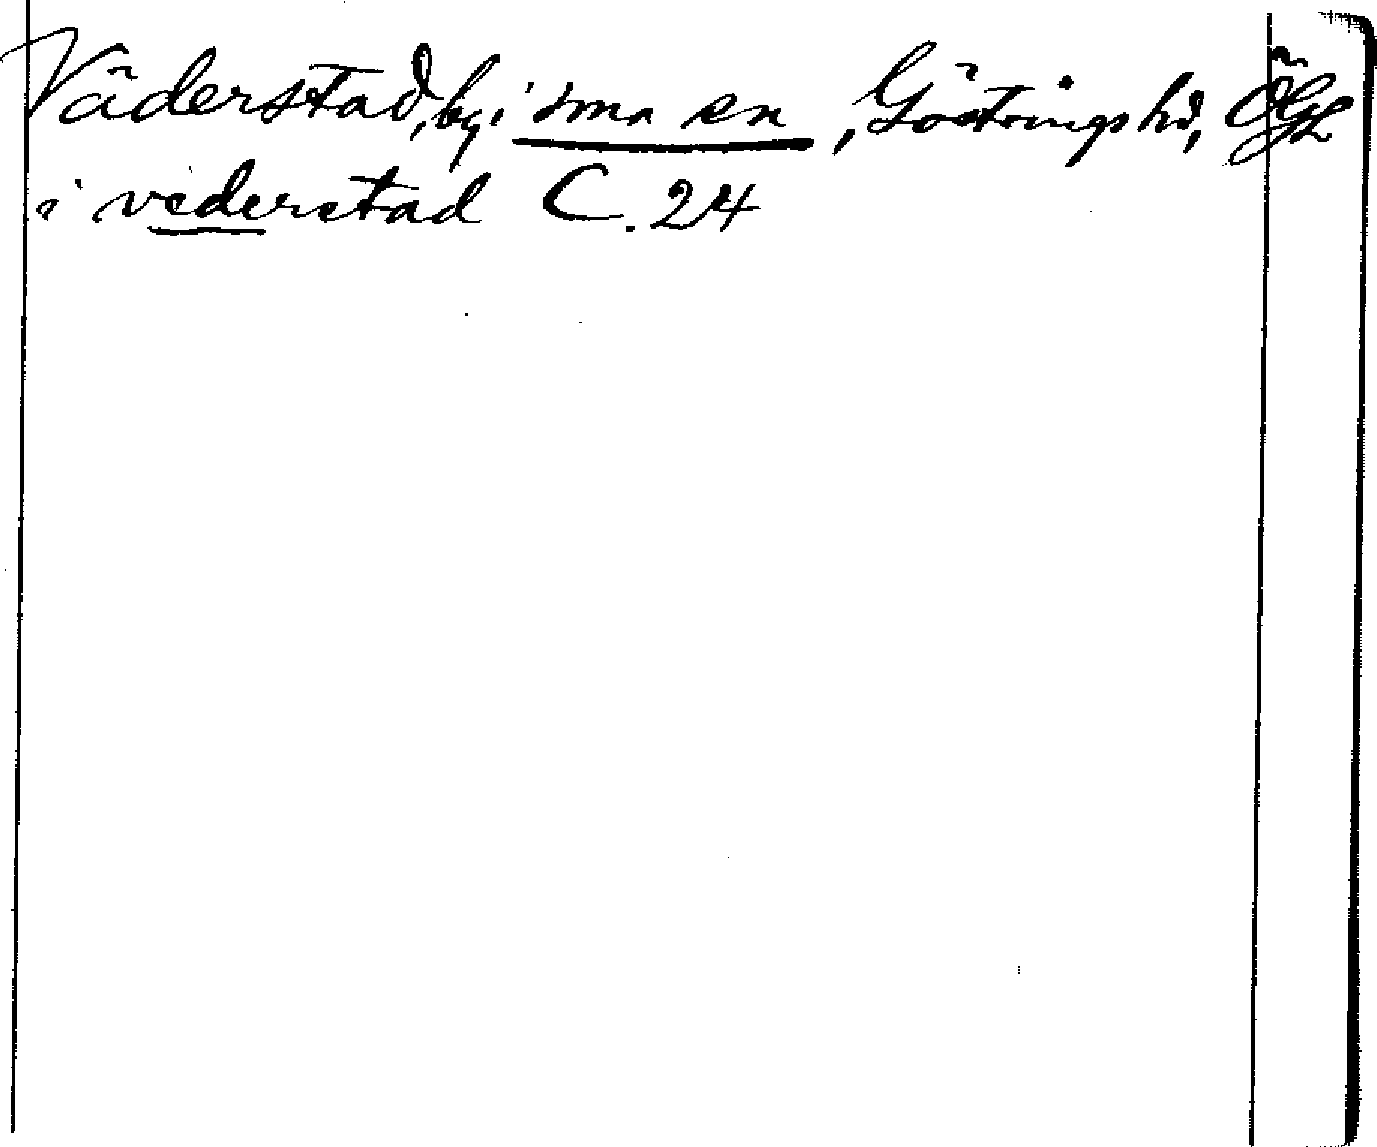 Väderstad, by i sma sn, Göstrings hd, ÖGL
i vederstad C. 24